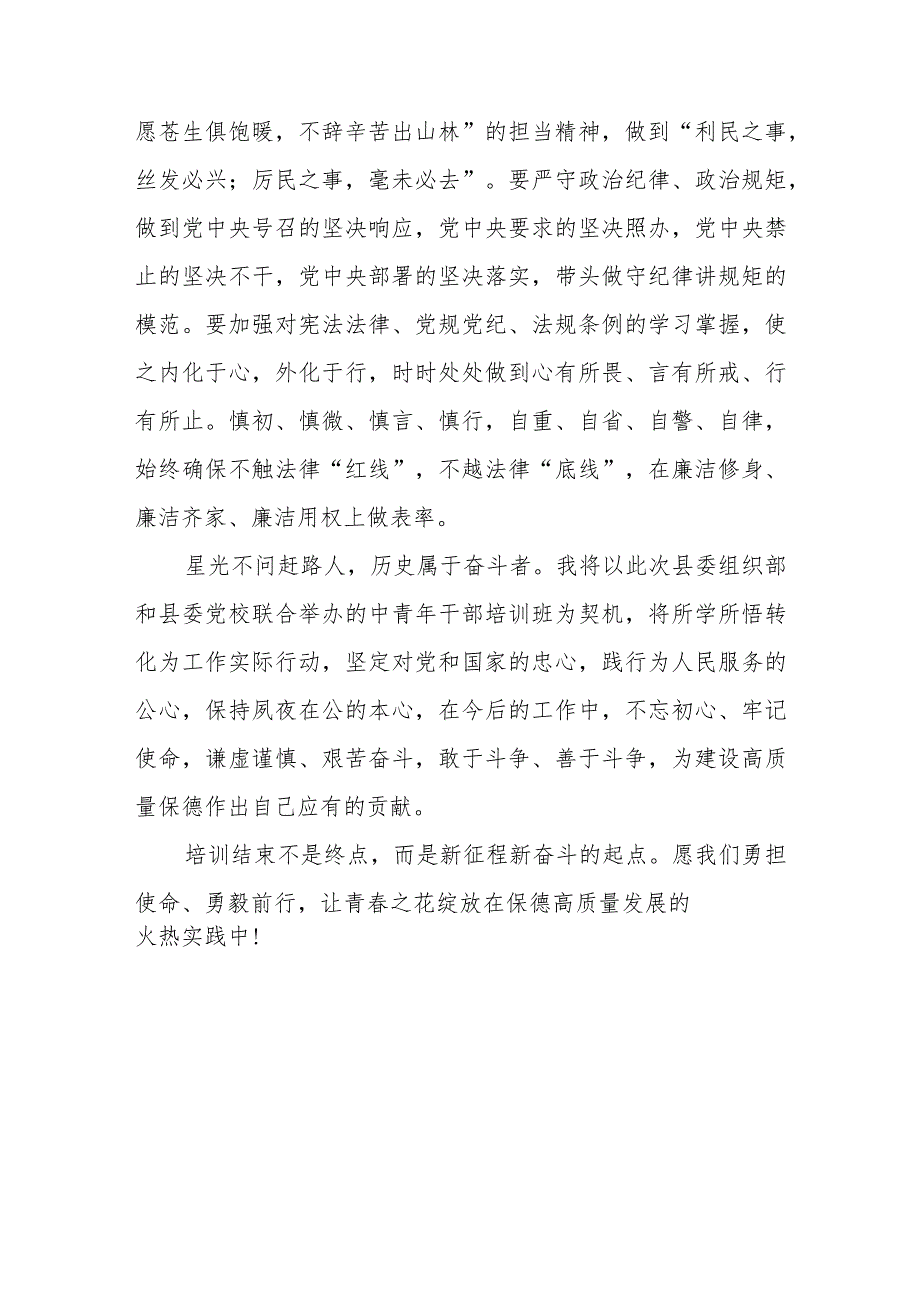 愿苍生俱饱暖，不辞辛苦出山林”的担当精神，做到“利民之事，
丝发必兴；厉民之事，毫未必去”。要严守政治纪律、政治规矩，
做到党中央号召的坚决响应，党中央要求的坚决照办，党中央禁
止的坚决不干，党中央部署的坚决落实，带头做守纪律讲规矩的
模范。要加强对宪法法律、党规党纪、法规条例的学习掌握，使
之内化于心，外化于行，时时处处做到心有所畏、言有所戒、行
有所止。慎初、慎微、慎言、慎行，自重、自省、自警、自律，
始终确保不触法律“红线”，不越法律“底线”，在廉洁修身、
廉洁齐家、廉洁用权上做表率。
星光不问赶路人，历史属于奋斗者。我将以此次县委组织部
和县委党校联合举办的中青年干部培训班为契机，将所学所悟转
化为工作实际行动，坚定对党和国家的忠心，践行为人民服务的
公心，保持夙夜在公的本心，在今后的工作中，不忘初心、牢记
使命，谦虚谨慎、艰苦奋斗，敢于斗争、善于斗争，为建设高质
量保德作出自己应有的贡献。
培训结束不是终点，而是新征程新奋斗的起点。愿我们勇担
使命、勇毅前行，让青春之花绽放在保德高质量发展的
火热实践中！